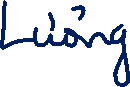 Lưỡng